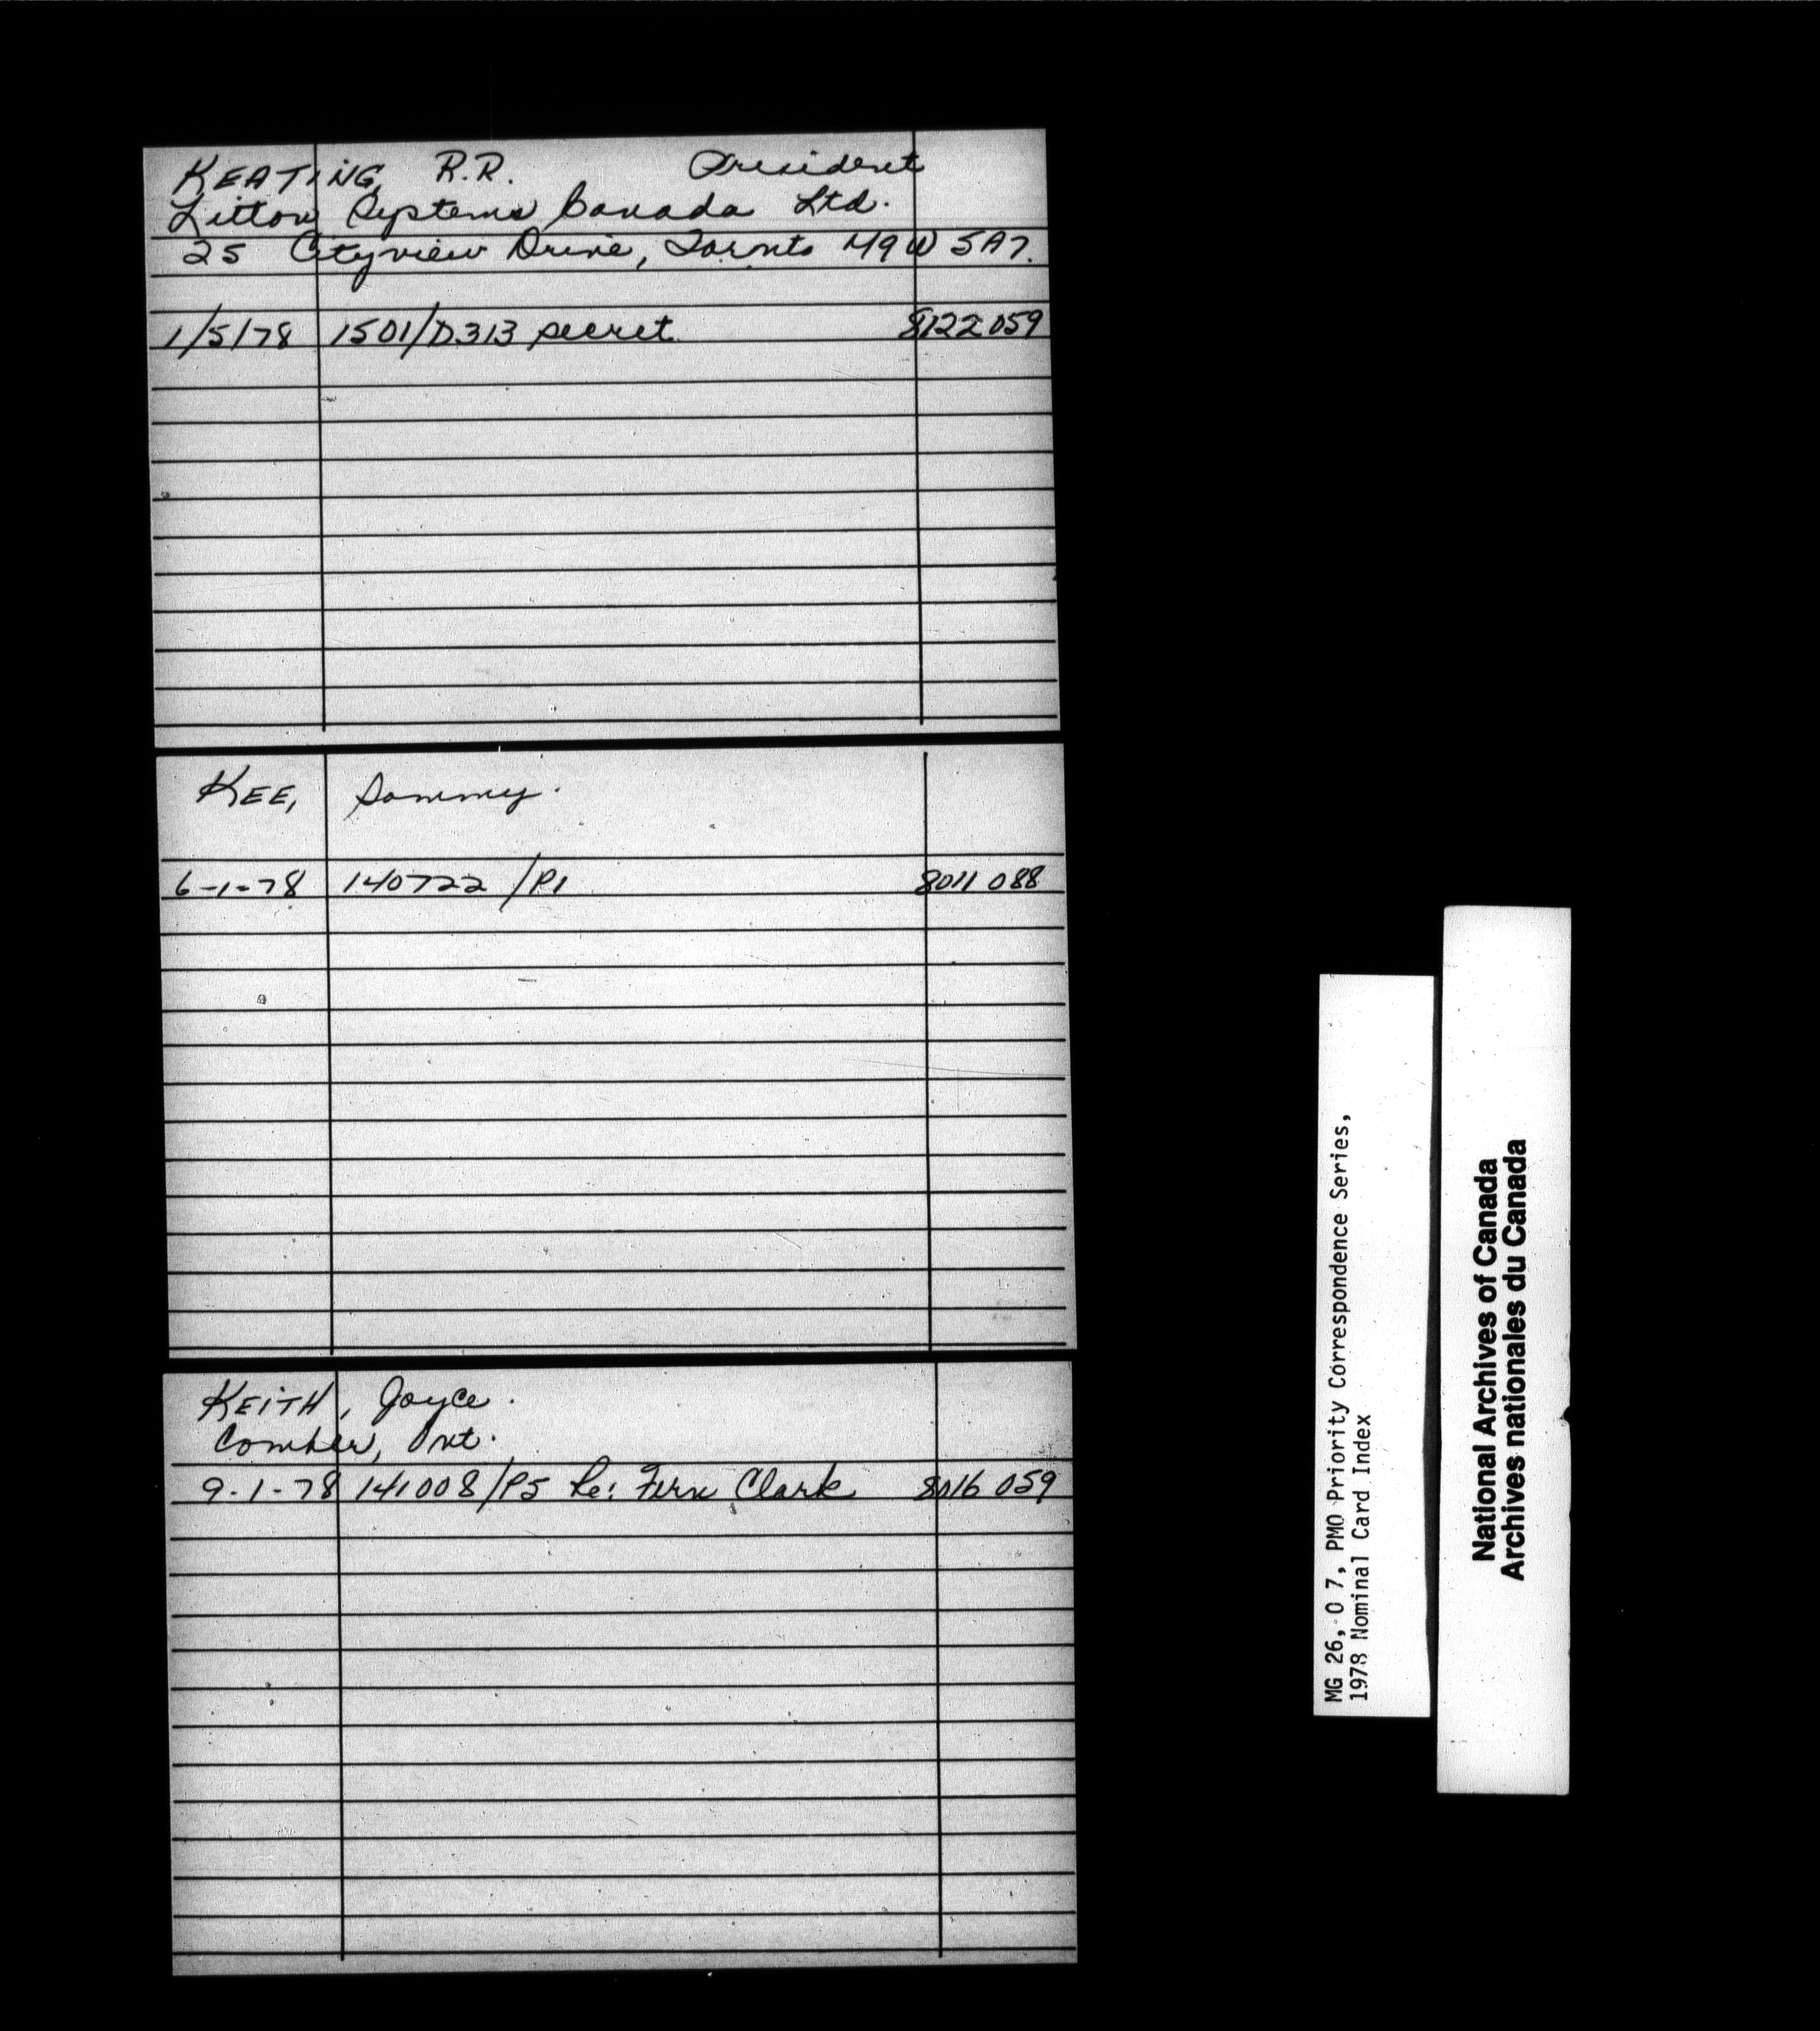 KEATING, R.R. President
Litton Systems Canada Ltd.
25 Cityview Drive, Toronto M9W 5A7.
1/5/78 1501/D313 secret 8122 059
KEE, Sammy.
6-1-78 140722 /P1 8011 088
KEITH, Joyce.
Comber, Ont.
9-1-78 141008/P5 Re: Fern Clark 8016 059
MG 26, O 7, PMO Priority Correspondence Series,
1978 Nominal Card Index
National Archives of Canada
Archives nationales du Canada